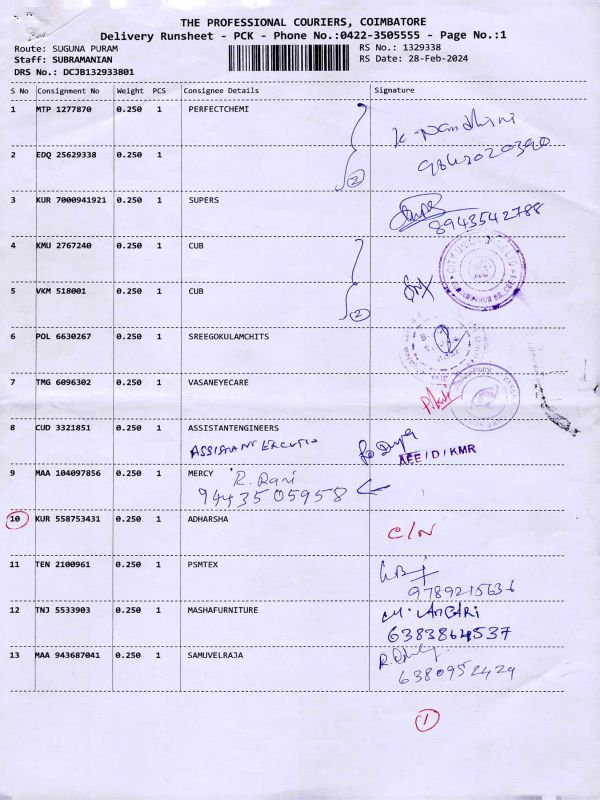 THE PROFESSIONAL COURIERS, COIMBATORE
Delivery Runsheet - PCK - Phone No.:0422-3505555 - Page No.:1
Route: SUGUNA PURAM
RS No.: 1329338
Staff: SUBRAMANIAN
RS Date: 28-Feb-2024
DRS No.: DCJB132933801
S No Consignment No Weight PCS Consignee Details Signature
1 MTP 1277870 0.250 1 PERFECTCHEMI
2 EDQ 25629338 0.250 1
2
3 KUR 7000941921 0.250 1 SUPERS
8943542788
4 KMU 2767240 0.250 1 CUB
5 VKM 518001 0.250 1 CUB
2
6 POL 6630267 0.250 1 SREEGOKULAMCHITS
7 TMG 6096302 0.250 1 VASANEYECARE
8 CUD 3321851 0.250 1 ASSISTANTENGINEERS
ASSISTANT
AEE/D/KMR
9 MAA 104097856 0.250 1 MERCY R. Rani
9443505958
10 KUR 558753431 0.250 1 ADHARSHA
C/N
11 TEN 2100961 0.250 1 PSMTEX
9789215636
12 TNJ 5533903 0.250 1 MASHAFURNITURE
6383864537
13 MAA 943687041 0.250 1 SAMUVELRAJA
6380952424
1